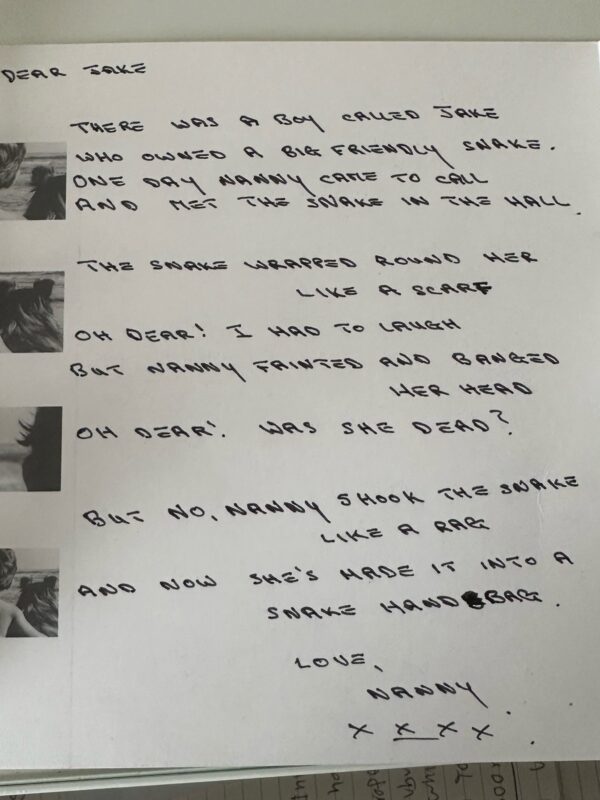 DEAR JAKE
THERE WAS A BOY CALLED JAKE
WHO OWNED A BIG FRIENDLY SNAKE.
ONE DAY NANNY CAME TO CALL
AND MET THE SNAKE IN THE HALL.
THE SNAKE WRAPPED ROUND HER
LIKE A SCARF
OH DEAR! I HAD TO LAUGH
BUT NANNY FAINTED AND BANGED
HER HEAD
OH DEAR! WAS SHE DEAD?
BUT NO, NANNY SHOOK THE SNAKE
LIKE A RAG
AND NOW SHE'S MADE IT INTO A
SNAKE HANDBAG.
LOVE,
NANNY.
X X X X